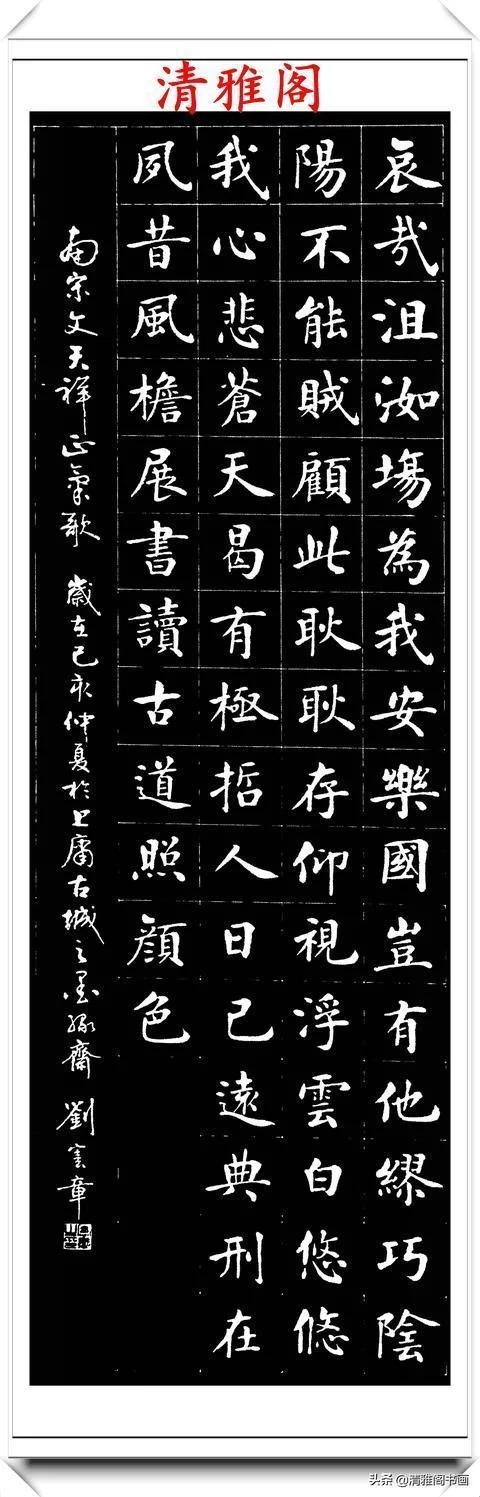 清雅阁
哀哉沮洳場為我安樂國豈有他繆巧陰
陽不能賊顧此耿耿存仰視浮雲白悠悠
我心悲蒼天曷有極哲人日已遠典刑在
夙昔風檐展書讀古道照顏色
南宋文天祥正氣歌 歲在己亥仲夏於上庸古城之墨緣齋 劉憲章
头条@清雅阁书画